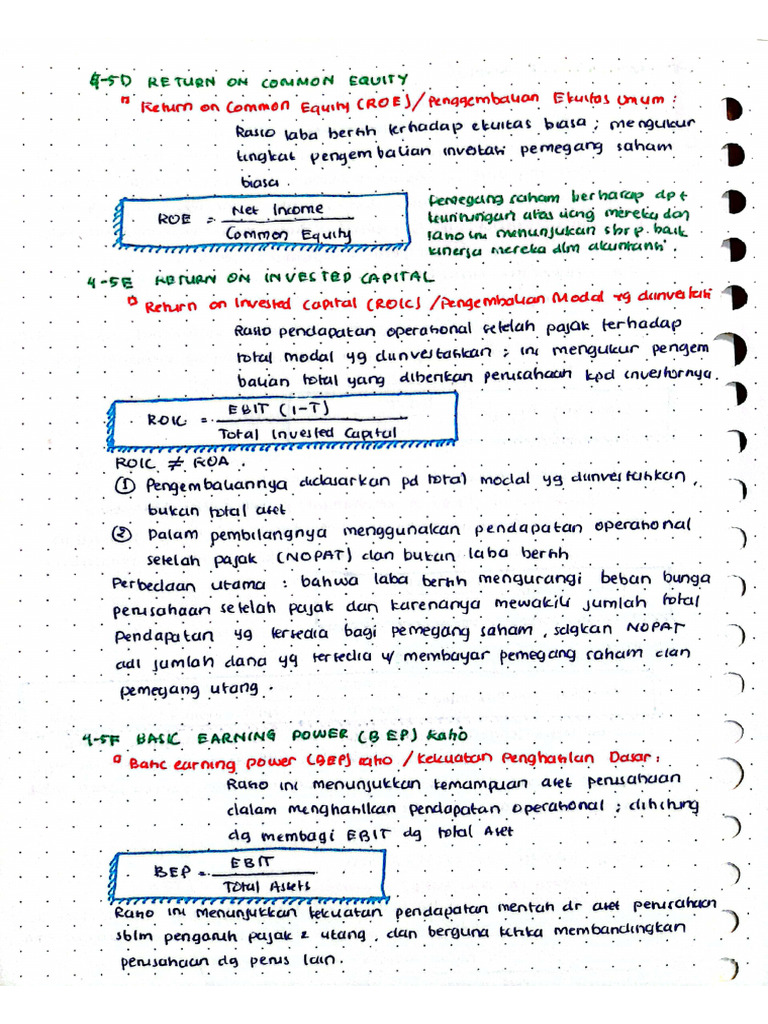 4-5D RETURN ON COMMON EQUITY
Return on Common Equity (ROE) / Penggembalian Ekuitas Umum :
Rasio laba bersih terhadap ekuitas biasa ; mengukur
tingkat pengembalian investasi pemegang saham
biasa.
ROE = Net Income
Common Equity
Pemegang saham berharap dpt
keuntungan atas uang mereka dan
rasio ini menunjukan sbrp. baik
kinerja mereka dlm akuntansi.
4-5E RETURN ON INVESTED CAPITAL
Return on Invested Capital (ROIC) / Pengembalian Modal yg diinvestasi
Rasio pendapatan operasional setelah pajak terhadap
total modal yg diinvestasikan ; ini mengukur pengem
balian total yang diberikan perusahaan kpd investornya.
ROIC = EBIT (1-T)
Total Invested Capital
ROIC ≠ ROA.
① Pengembaliannya didasarkan pd total modal yg diinvestasikan,
bukan total aset
② Dalam pembilangnya menggunakan pendapatan operasional
setelah pajak (NOPAT) dan bukan laba bersih
Perbedaan utama : bahwa laba bersih mengurangi beban bunga
perusahaan setelah pajak dan karenanya mewakili jumlah total
Pendapatan yg tersedia bagi pemegang saham, sdgkan NOPAT
adl jumlah dana yg tersedia u/ membayar pemegang saham dan
pemegang utang.
4-5F BASIC EARNING POWER (BEP) Ratio
Basic earning power (BEP) ratio / Kekuatan Penghasilan Dasar :
Rasio ini menunjukkan kemampuan aset perusahaan
dalam menghasilkan pendapatan operasional ; dihitung
dg membagi EBIT dg total Aset
BEP = EBIT
Total Assets
Rasio ini menunjukkan kekuatan pendapatan mentah dr aset perusahaan
sblm pengaruh pajak & utang, dan berguna ketika membandingkan
perusahaan dg perus lain.